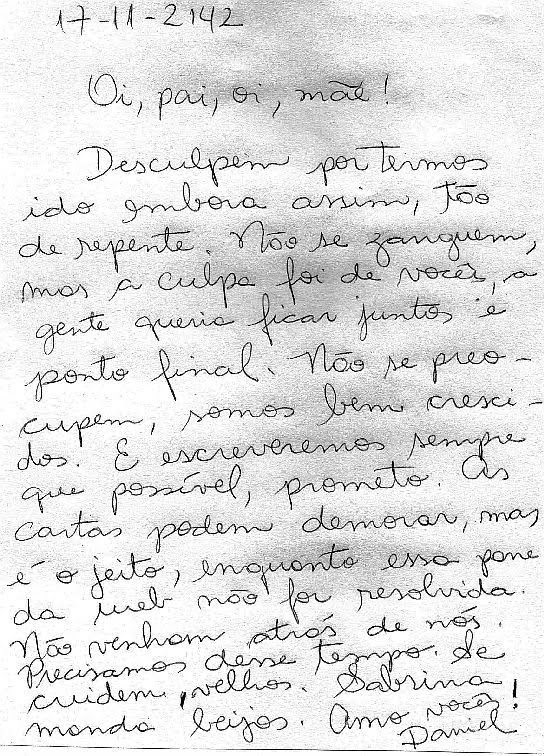 17-11-2142
Oi, pai, oi, mãe!
Desculpem por termos
ido embora assim, tão
de repente. Não se zanguem,
mas a culpa foi de vocês, a
gente queria ficar juntos e
ponto final. Não se preo-
cupem, somos bem cresci-
dos. E escreveremos sempre
que possível, prometo. As
cartas podem demorar, mas
é o jeito, enquanto essa pane
da web não for resolvida.
Não venham atrás de nós.
Precisamos desse tempo. Se
cuidem, velhos. Sabrina
manda beijos. Amo vocês!
Daniel